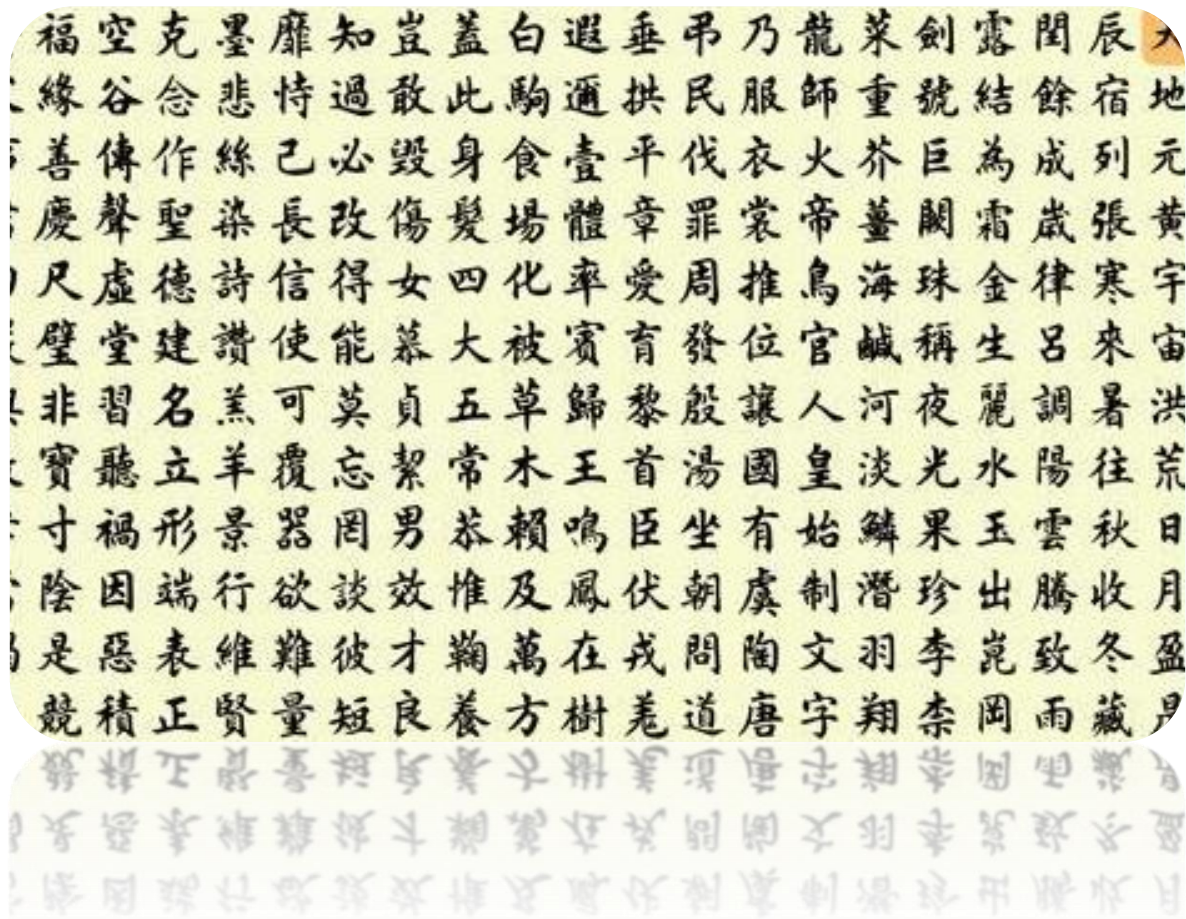 天地元黃宇宙洪荒日月盈昃
辰宿列張寒來暑往秋收冬藏
閏餘成歲律呂調陽雲騰致雨
露結為霜金生麗水玉出崑岡
劍號巨闕珠稱夜光果珍李柰
菜重芥薑海鹹河淡鱗潛羽翔
龍師火帝鳥官人皇始制文字
乃服衣裳推位讓國有虞陶唐
弔民伐罪周發殷湯坐朝問道
垂拱平章愛育黎首臣伏戎羌
遐邇壹體率賓歸王鳴鳳在樹
白駒食場化被草木賴及萬方
蓋此身髮四大五常恭惟鞠養
豈敢毀傷女慕貞絜男效才良
知過必改得能莫忘罔談彼短
靡恃己長信使可覆器欲難量
墨悲絲染詩讚羔羊景行維賢
克念作聖德建名立形端表正
空谷傳聲虛堂習聽禍因惡積
福緣善慶尺璧非寶寸陰是競